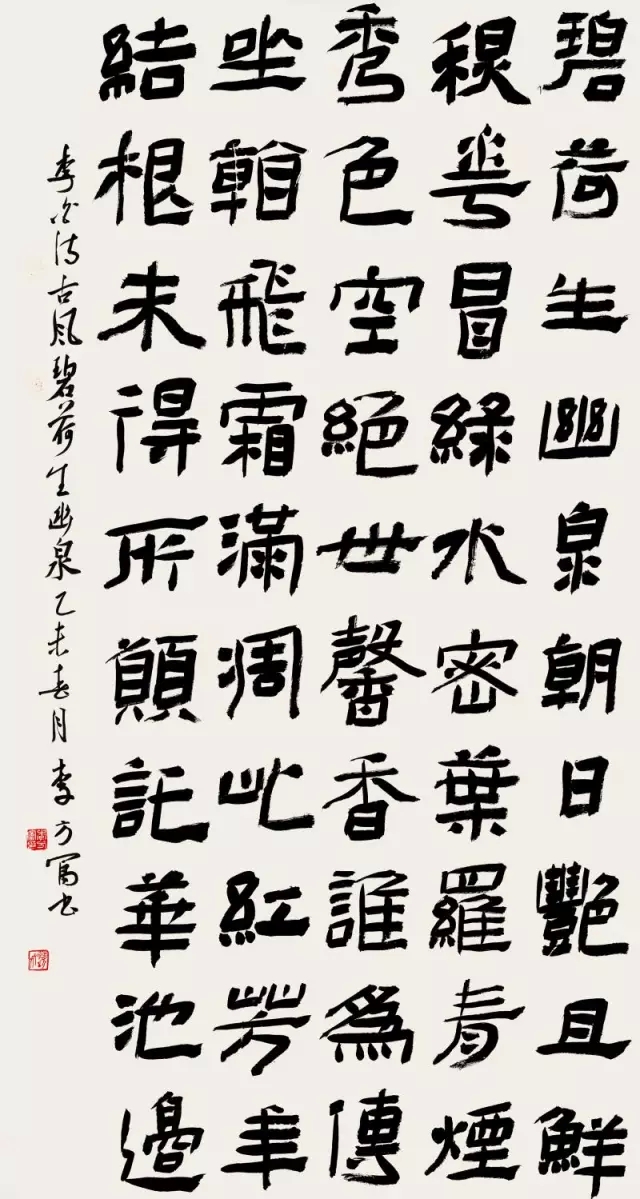 碧荷生幽泉朝日艷且鮮
秋花冒綠水密葉羅青煙
秀色空絕世馨香誰爲傳
坐看飛霜滿凋此紅芳年
結根未得所願託華池邊
李白詩古風碧荷生幽泉乙未春月李方寫書